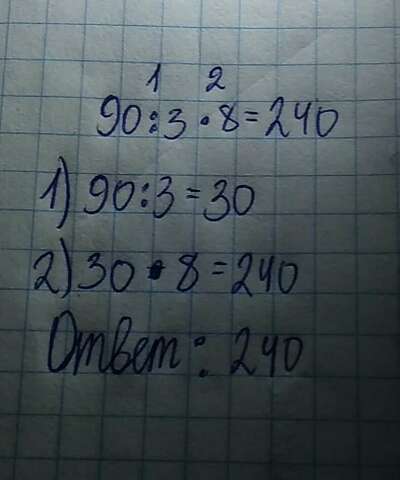 1 2
90:3·8=240
1) 90:3=30
2) 30·8=240
Ответ: 240